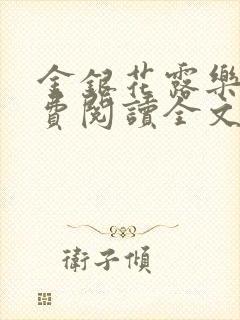 金銀花露樂
費閱讀全文
衛子傾